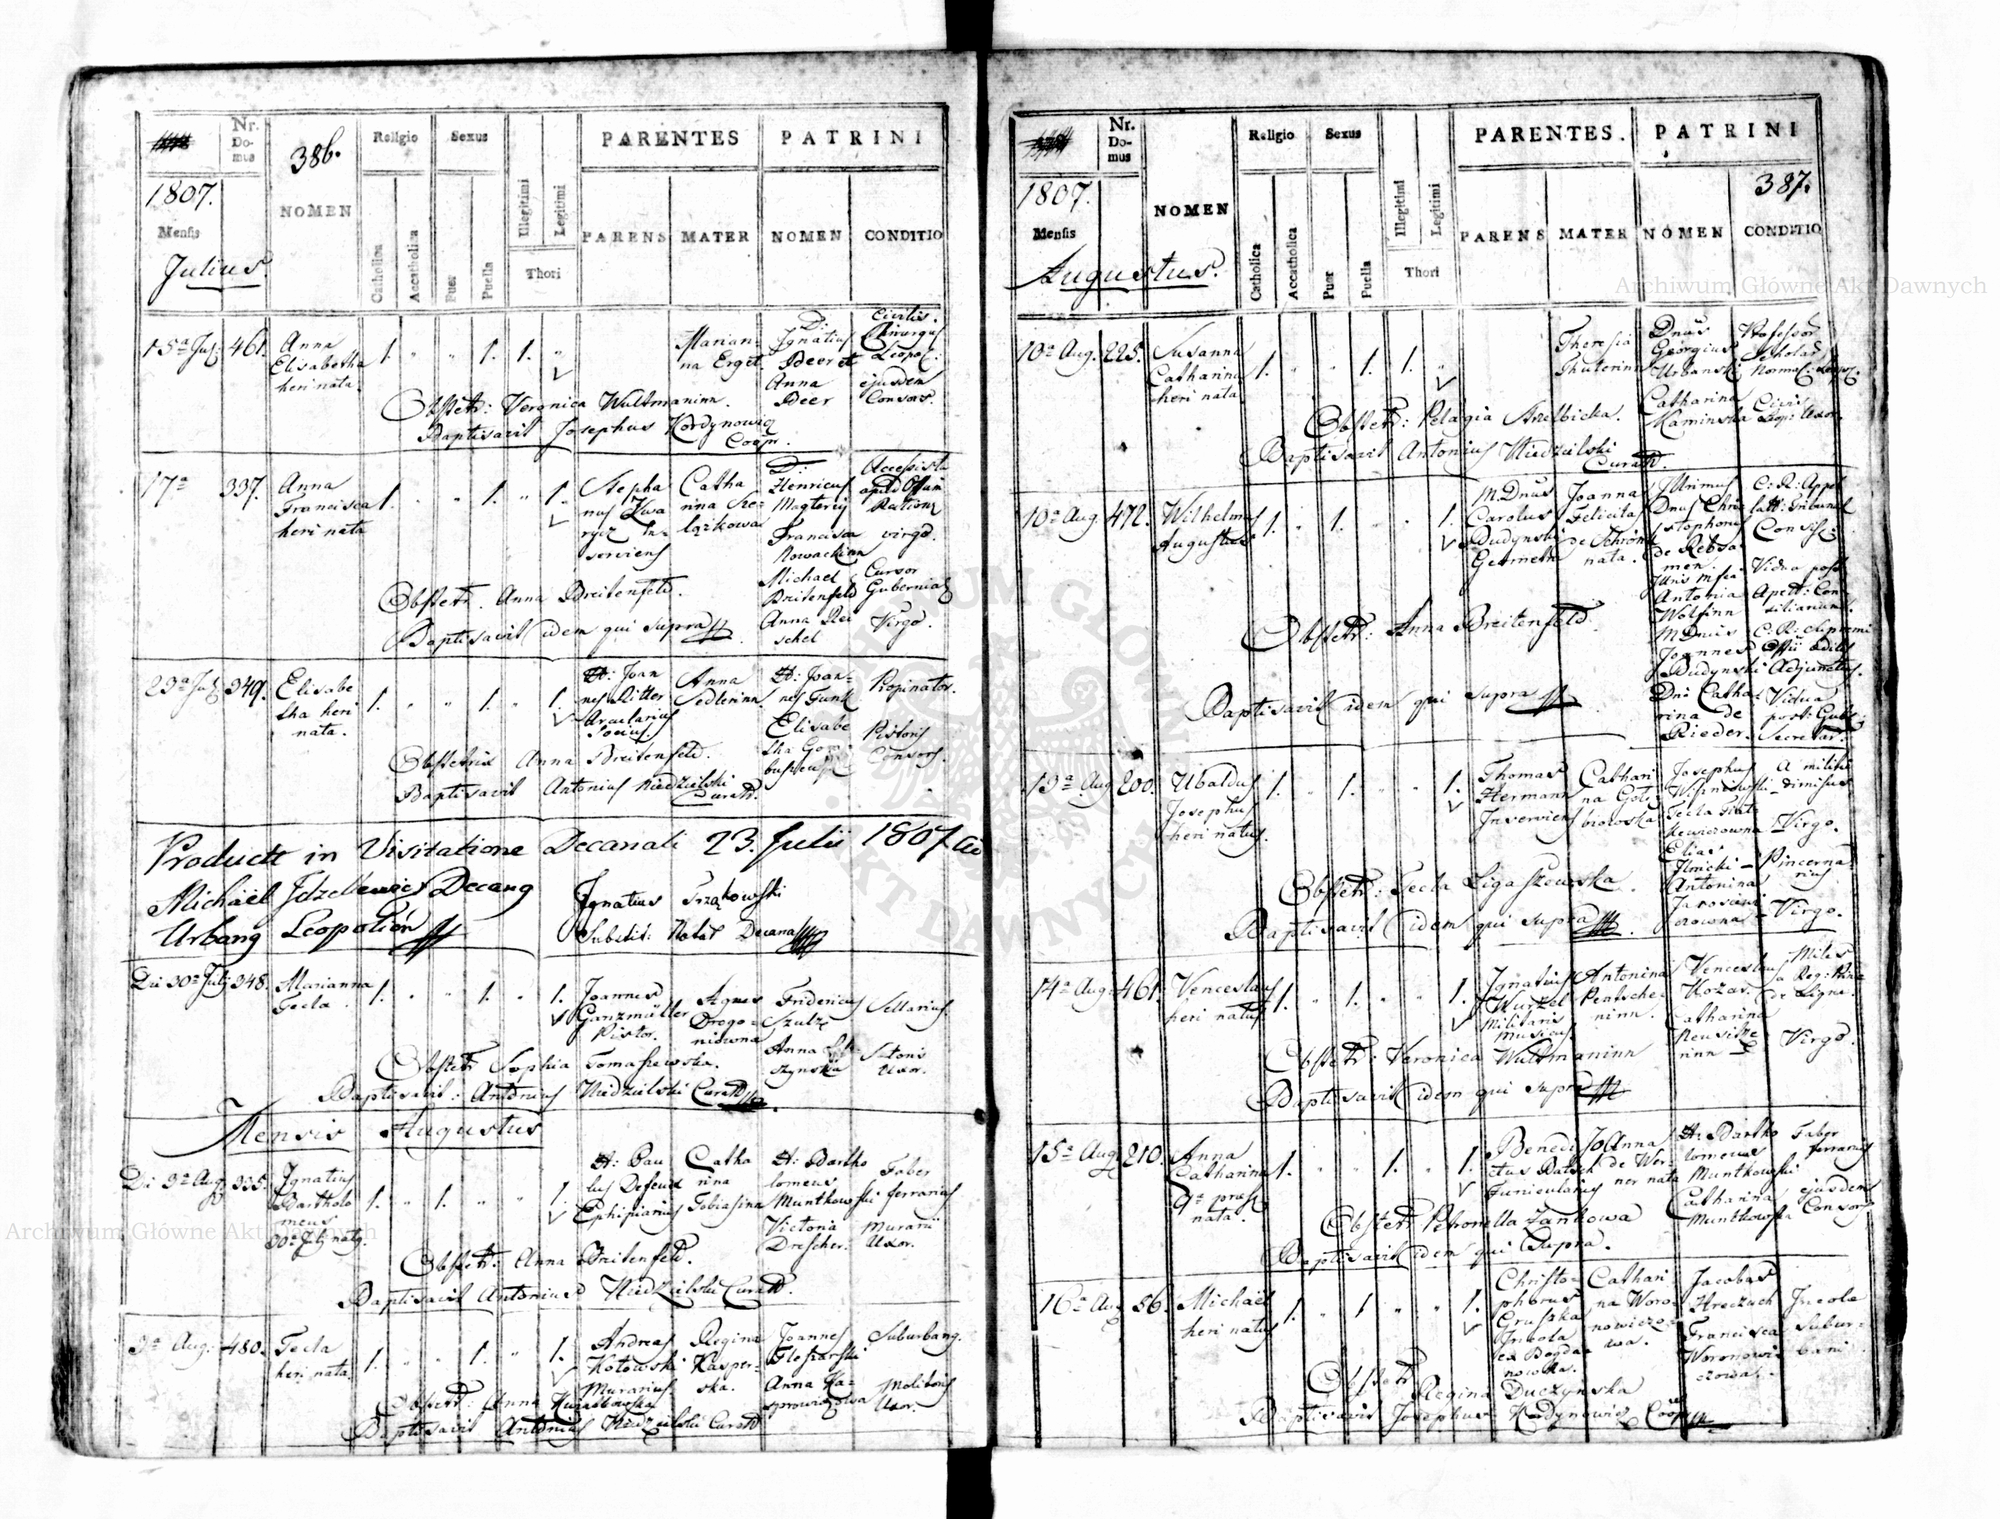 Nr. Do- mus
386.
Religio
Sexus
PARENTES
PATRINI
1807.
Mensis
NOMEN
Catholica
Accatholica
Puer
Puella
Illegitimi
Legitimi
Thori
PARENS
MATER
NOMEN
CONDITIO
Julius
15ª Jul. 461.
Anna
Elisabetha
heri nata.
1. " " 1. 1. "
Marian-
na Erget.
D:
Ignatius
Beer et
Anna
Beer
Civilis.
Chirurgus
Leopol:
ejusdem
Consors.
Obstetr: Veronica Wultmaninn.
Baptisavit Josephus Kordynowicz
Coopr.
17ª 337.
Anna
Francisca
heri nata
1. " " 1. " 1.
Stepha
nus
In-
serviens
Catha
rina
D:
Henricus
Magterny
Francisca
Nowackinn
Michael
Breitenfeld
Anna Rei
schel
Accessista
apud
virgo.
Cursor
Gubernial
Virgo.
Obstetr. Anna Breitenfeld.
Baptisavit idem qui supra
23ª Jul. 349.
Elisabe
tha heri
nata.
1. " " 1. " 1.
H: Joan
nes Ritter
Arcularius
Socius.
Anna
Sedlerinn.
H: Joan-
nes Funk
Elisabe
tha
Propinator.
Pistoris
Consors.
Obstetrix Anna Breitenfeld.
Baptisavit Antonius Niedzielski
Curatt.
Product in Visitatione Decanali 23. Julii 1807
Michael Decang
Urbang Leopolien
Ignatius Trząkowski
Substit: Notar Decana
Die 30ª July 348.
Marianna
Tecla.
1. " " 1. " 1.
Joannes
Ganzmüller
Pistor.
Agnes
Drego-
niowna
Fridericus
Szultz
Anna
Sellarius.
Sutoris
Uxor.
Obstetr Sophia Tomaszewska.
Baptisavit: Antonius Niedzielski Curatt
Mensis Augustus
Di 3ª Aug. 335.
Ignatius
Bartholo
meus
30ª July natg.
1. " 1. " " 1.
H: Pau
lus
Ephipiarius
Catha
rina
Tobiasina
H: Bartho
lomeus
Muntkowski
Victoria
Drescher.
Faber
ferrarius
Murarii
Uxor.
Obstetr: Anna Breitenfeld.
Baptisavit Antonius Niedzielski Curatt.
9ª Aug. 480.
Tecla
heri nata.
1. " " 1. " 1.
Andreas
Kotowski
Murarius
Regina
Kasper-
ska.
Joannes
Anna Ka-
Suburbang.
Molitoris
Uxor.
Obstetr: Anna
Baptisavit Antonius Niedzielski Curatt
Nr. Do- mus
Religio
Sexus
PARENTES.
PATRINI
1807.
387.
Mensis
NOMEN
Catholica
Accatholica
Puer
Puella
Illegitimi
Legitimi
Thori
PARENS
MATER
NOMEN
CONDITIO
Augustus.
10ª Aug. 225.
Susanna
Catharina
heri nata
1. " " 1. 1. "
Theresia
Thuterinn
Dnus
Georgius
Urbanski
Catharina
Kaminska
Professor
Scholar
Normal:
Civis
Leop: Uxor.
Obstetr: Pelagia Strzelbicka.
Baptisavit Antonius Niedzielski
Curatt.
10ª Aug. 472.
Wilhelmus
Augustus
1. " 1. " " 1.
M. Dnus
Carolus
Budynski
Geometra
Joanna
Felicita
de Schrön
nata.
Illrimus
Dnus Chri
stophorus
de Rebsa-
men.
Antonia
Wolfinn
M. Dnus
Joannes
Budynski
Dna Catha
rina de
Rieder.
C: R: Appel
latt: Tribunal
Consil:
Vidua post
Apell: Con
siliarium.
C: R: Supremi
Offii Edilis
Adjunctus.
Vidua
post: Gub:
Secretar:
Obstetr: Anna Breitenfeld.
Baptisavit idem qui supra
13ª Aug. 200.
Ubaldus
Josephus
heri natus.
1. " 1. " " 1.
Thomas
Hermann
Inserviens
Cathari
na Gołę
biowska
Josephus
Wisniowski
Tecla
Elias
Ilnicki
Antonina
Jarosie
A militi
dimissus
Virgo.
Pincerna
rius
Virgo.
Obstetr: Tecla Ligaszewska.
Baptisavit idem qui supra
14ª Aug. 461.
Venceslaus
heri natus
1. " 1. " " 1.
Ignatius
Wurzel
Militaris
Musicus.
Antonina
Pentsche
ninn.
Venceslaus
Kozar.
Catharina
rinn
Miles
a Reg:
de Ligne.
Virgo.
Obstetr: Veronica Wultmaninn
Baptisavit idem qui supra
15ª Aug. 210.
Anna
Catharina
9ª præs
nata.
1. " " 1. " 1.
Benedi
ctus Batsch
Funicularius
Joanna
de Wer-
ner nata
H: Bartho
lomeus
Muntkowski
Catharina
Muntkowska
Faber
ferrarius
ejusdem
Consors
Obstetr Petronella Zankowa
Baptisavit idem qui Supra.
16ª Aug. 56.
Michael
heri natus
1. " 1 " " 1.
Christo-
phorus
Gruszka
Incola
ex Bogda
nowka.
Cathari
na Woro-
nowiczo-
wa.
Jacobus
Hreczuch
Francisca
Woronowi
czowa.
Incola
Subur-
bani
Obstetr
Regina Duczynska
Baptisavit Josephus Kordynowicz Coopr
Archiwum Główne Akt Dawnych
Archiwum Główne Akt Dawnych
ARCHIWUM GŁÓWNE AKT DAWNYCH